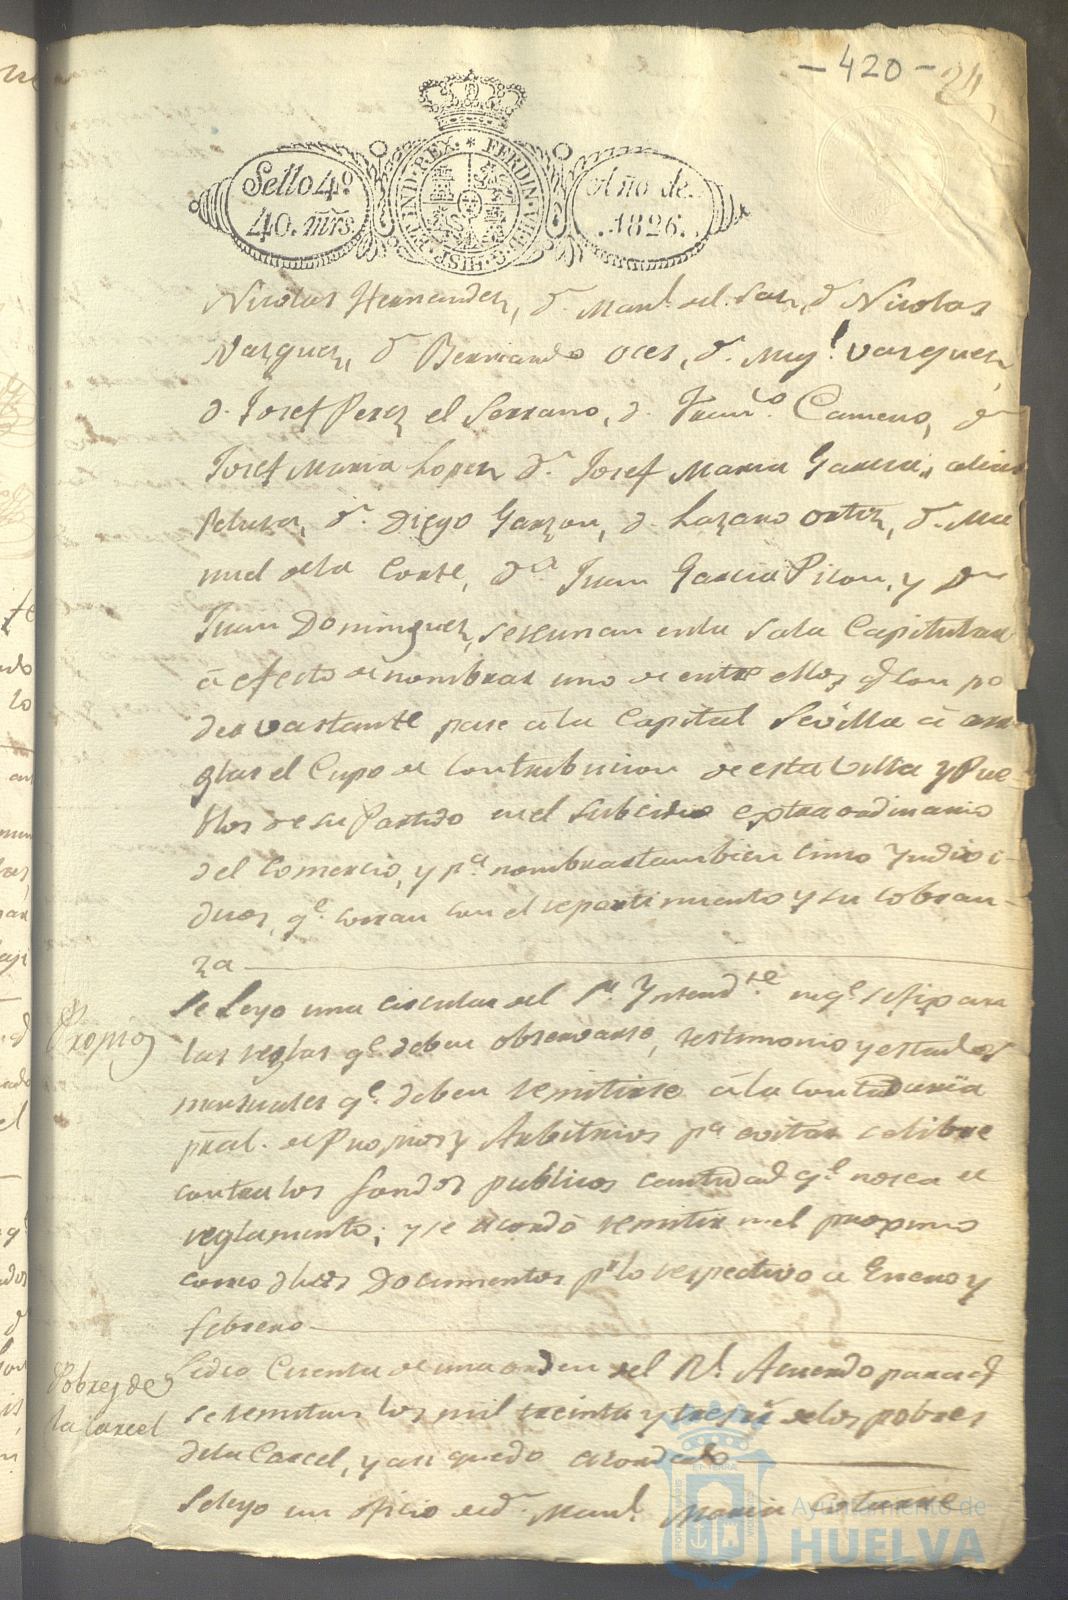 - 420 -
Sello 4º
40. mrs.
HISP. ET IND. REX. * FERDIN. VII. D. G.
Año de
.1826.
Nicolas Hernandez, dⁿ Manˡ. del Saz, dⁿ Nicolas
Vazquez, dⁿ Bernardo oces, dⁿ. Migˡ. vazquez,
d. Josef Perez el Serrano, d. Franᶜº. Camero, dⁿ
Josef Maria Lopez dⁿ. Josef Maria Garcia, alias
Peluza, dⁿ. Diego Garzon, d. Lazaro ortiz, dⁿ. Ma
nuel de la Corte, dⁿ Juan Garcia Pison, y dⁿ
Juan Dominguez, se reunan en la Sala Capitular
á efecto de nombrar uno de entre ellos qᵉ con po
der vastante pase á la Capital Sevilla á arre
glar el Cupo de contribucion de esta Villa y Pue-
blos de su Partido en el Subcidio extraordinario
del Comercio, y pᵃ nombrar tambien cinco Yndivi-
duos, qᵉ. corran con el repartimiento y su cobran-
za
Propios
Se Leyo una circular del Sʳ Yntendᵗᵉ. en qᵉ se fixaron
las reglas qᵉ. deben observarse, testimonio y estados
mensuales qᵉ. deben remitirse á la contaduria
pral. de Propios y Arbitrios pᵃ evitar se libre
contra los fondos publicos cantidad qᵉ. no sea de
reglamento; y se acordó remitir en el proximo
correo dhos Documentos pʳ lo respectivo a Enero y
febrero
Pobres de
la Carcel
Se dio Cuenta de una orden del Rˡ. Acuerdo para q
se remitan los mil treinta y tres rˢ de los pobres
de la Carcel, y asi quedo acordado
Se leyo un oficio de dⁿ. Manˡ. Maria
Ayuntamiento de
HUELVA